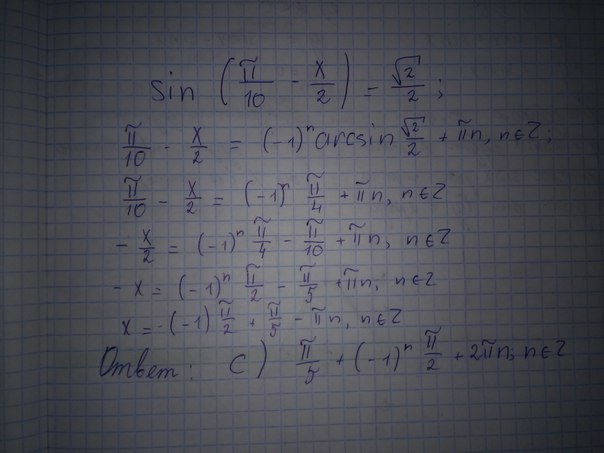 sin (π/10 - x/2) = √2/2;
π/10 - x/2 = (-1)ⁿ arcsin √2/2 + πn, n∈Z;
π/10 - x/2 = (-1)ⁿ π/4 + πn, n∈Z
- x/2 = (-1)ⁿ π/4 - π/10 + πn, n∈Z
- x = (-1)ⁿ π/2 - π/5 + πn, n∈Z
x = -(-1) π/2 + π/5 - πn, n∈Z
Ответ: C) π/5 + (-1)ⁿ π/2 + 2πn, n∈Z